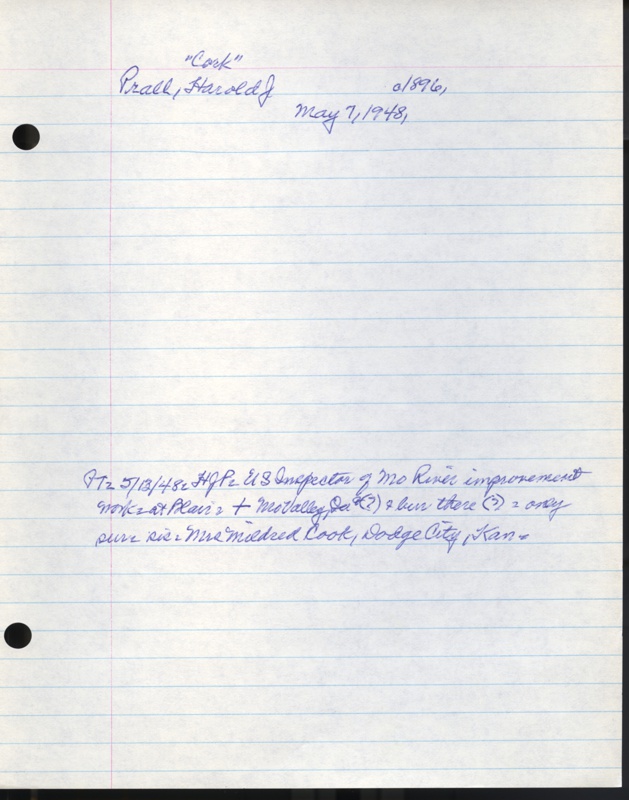 "Cork"
Prall, Harold J c1896,
May 7, 1948,
5/13/48: HJP = US Inspector of Mo River improvement
work = at Blair = + Mo Valley, Ia (?) & bur there (?) = only
surv sis = Mrs Mildred Cook, Dodge City, Kan =